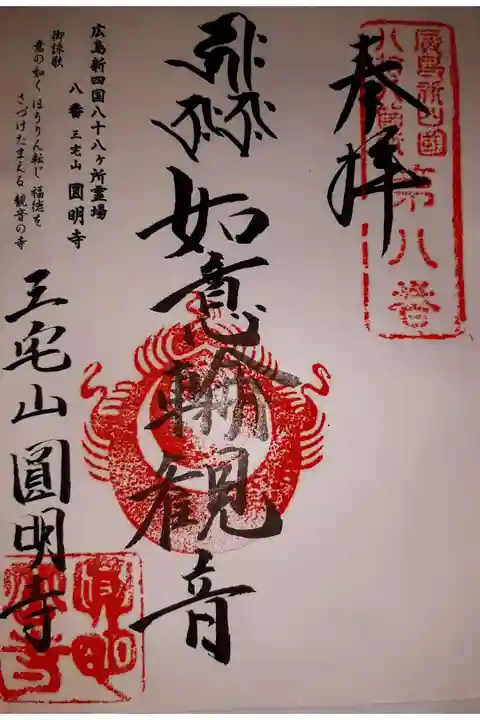 奉拝
廣島新四國
八十八箇所
第八番
如意輪観音
広島新四国八十八ヶ所霊場
八番 三宅山 圓明寺
御詠歌
意の如く ほうりん転じ 福徳を
さづけたまえる 観音の寺
三宅山圓明寺